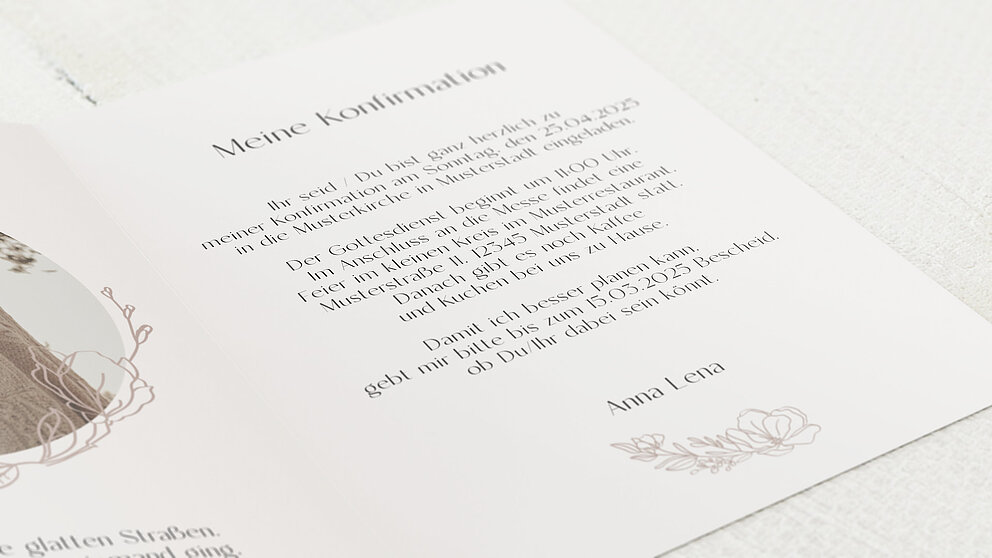 Meine Konfirmation
Ihr seid / Du bist ganz herzlich zu
meiner Konfirmation am Sonntag, den 25.04.2025
in die Musterkirche in Musterstadt eingeladen.
Der Gottesdienst beginnt um 11:00 Uhr.
Im Anschluss an die Messe findet eine
Feier im kleinen Kreis im Musterrestaurant,
Musterstraße 11, 12345 Musterstadt statt.
Danach gibt es noch Kaffee
und Kuchen bei uns zu Hause.
Damit ich besser planen kann,
gebt mir bitte bis zum 15.03.2025 Bescheid,
ob Du/Ihr dabei sein könnt.
Anna Lena
glatten Straßen.
ging.